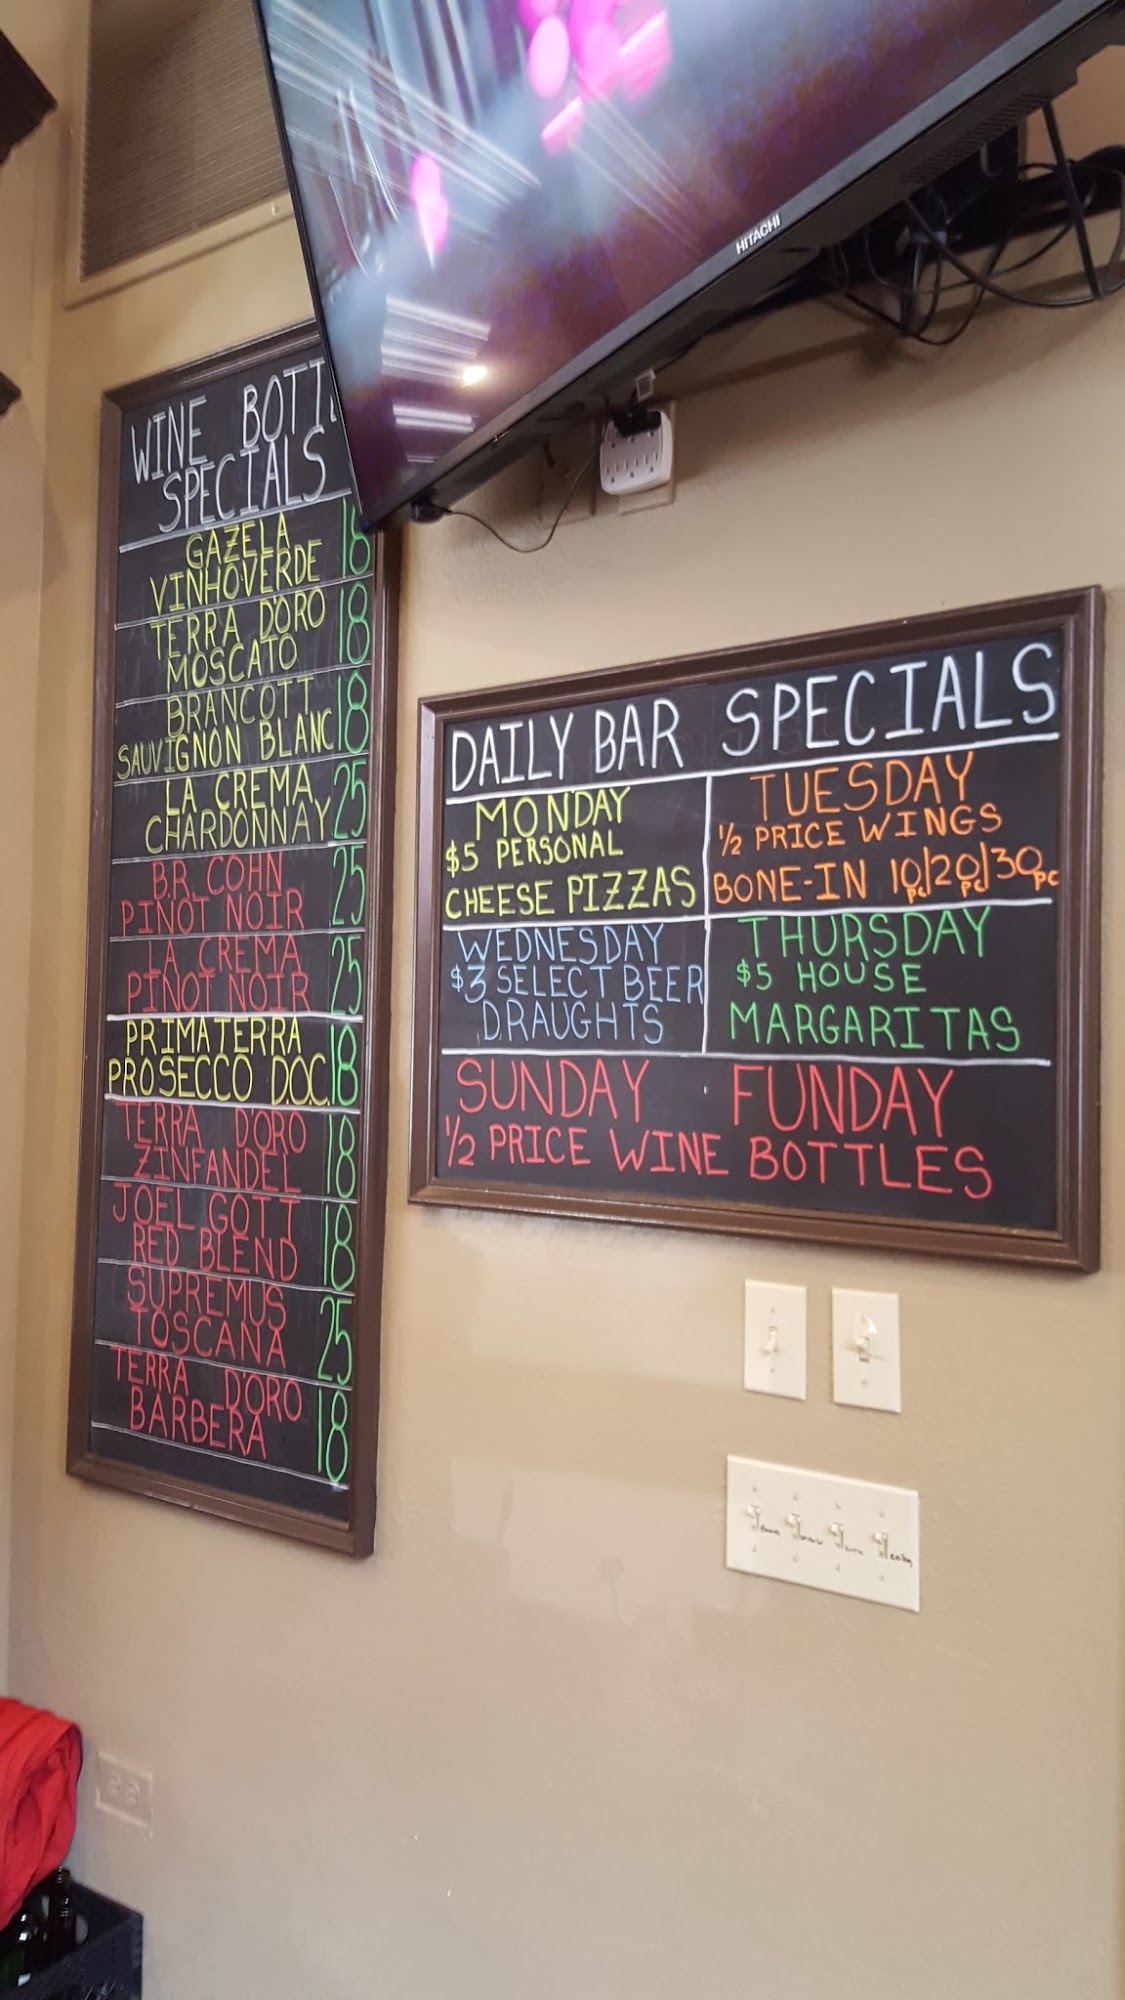 HITACHI
WINE BOTTL
SPECIALS
GAZELA 18
VINHOVERDE
TERRA D'ORO 18
MOSCATO
BRANCOTT 18
SAUVIGNON BLANC
LA CREMA 25
CHARDONNAY
B.R. COHN 25
PINOT NOIR
LA CREMA 25
PINOT NOIR
PRIMATERRA 18
PROSECCO D.O.C.
TERRA D'ORO 18
ZINFANDEL
JOEL GOTT 18
RED BLEND
SUPREMUS 25
TOSCANA
TERRA D'ORO 18
BARBERA
DAILY BAR SPECIALS
MONDAY
$5 PERSONAL
CHEESE PIZZAS
TUESDAY
1/2 PRICE WINGS
BONE-IN 10pc/20pc/30pc
WEDNESDAY
$3 SELECT BEER
DRAUGHTS
THURSDAY
$5 HOUSE
MARGARITAS
SUNDAY FUNDAY
1/2 PRICE WINE BOTTLES